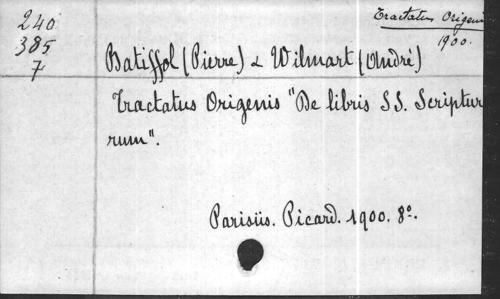 240
385
7
Tractatus Origenis
1900.
Batiffol (Pierre) & Wilmart (André)
Tractatus Origenis "De libris SS. Scriptur
rum".
Parisiis. Picard. 1900. 8º.